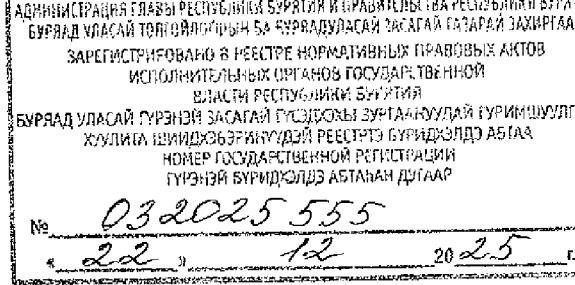 АДМИНИСТРАЦИЯ ГЛАВЫ РЕСПУБЛИКИ БУРЯТИЯ И ПРАВИТЕЛЬСТВА РЕСПУБЛИКИ
БУРЯАД УЛАСАЙ ТОЛГОЙЛОГШЫН БА БУРЯАД УЛАСАЙ ЗАСАГАЙ ГАЗАРАЙ ЗАХИРГААН
ЗАРЕГИСТРИРОВАНО В РЕЕСТРЕ НОРМАТИВНЫХ ПРАВОВЫХ АКТОВ
ИСПОЛНИТЕЛЬНЫХ ОРГАНОВ ГОСУДАРСТВЕННОЙ
ВЛАСТИ РЕСПУБЛИКИ БУРЯТИЯ
БУРЯАД УЛАСАЙ ГҮРЭНЭЙ ЗАСАГАЙ ГҮЙСЭДХЭХЫ ЗУРГААНУУДАЙ
ХУУЛИТА ШИИДХЭБЭРИНҮҮДЭЙ РЕЕСТРТЭ БҮРИДХЭЛДЭ АБТАА
НОМЕР ГОСУДАРСТВЕННОЙ РЕГИСТРАЦИИ
ГҮРЭНЭЙ БҮРИДХЭЛДЭ АБТАҺАН ДУГААР
№ 032025555
« 22 » 12 2025 г.